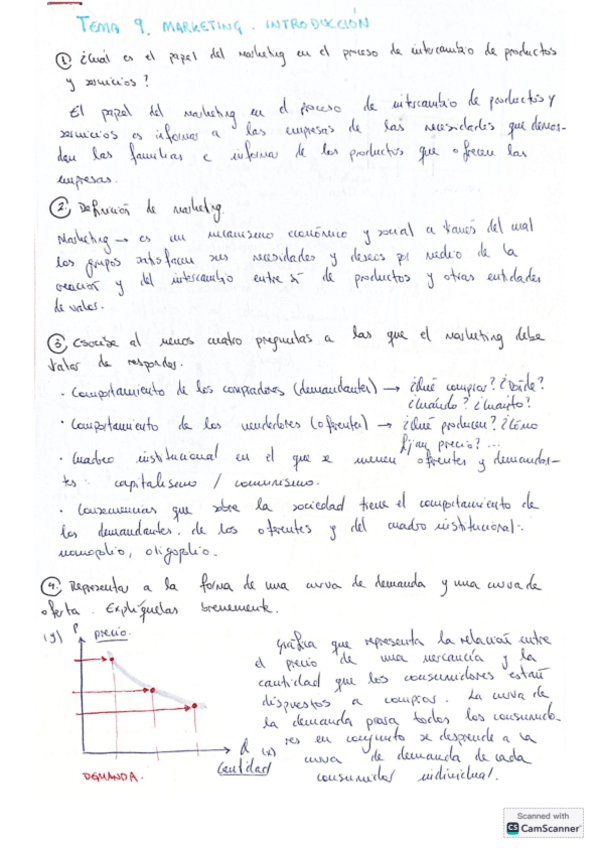 TEMA 9. MARKETING. INTRODUCCIÓN
1. ¿Cuál es el papel del marketing en el proceso de intercambio de productos
y servicios?
El papel del marketing en el proceso de intercambio de productos y
servicios es informar a las empresas de las necesidades que deman-
dan las familias e informar de los productos que ofrecen las
empresas.
2. Definición de marketing.
Marketing → es un mecanismo económico y social a través del cual
los grupos satisfacen sus necesidades y deseos por medio de la
creación y del intercambio entre sí de productos y otras entidades
de valor.
3. Escribe al menos cuatro preguntas a las que el marketing debe
tratar de responder.
· Comportamiento de los compradores (demandantes) → ¿Qué comprar? ¿Dónde?
¿Cuándo? ¿Cuánto?
· Comportamiento de los vendedores (oferentes) → ¿Qué producen? ¿Cómo
fijan precio? ...
· Cuadro institucional en el que se mueven oferentes y demandan-
tes: capitalismo / comunismo.
· Consecuencias que sobre la sociedad tiene el comportamiento de
los demandantes, de los oferentes y del cuadro institucional:
monopolio, oligopolio.
4. Representar a la forma de una curva de demanda y una curva de
oferta. Explíquelas brevemente.
(y) P precio.
Gráfica que representa la relación entre
el precio de una mercancía y la
cantidad que los consumidores están
dispuestos a comprar. La curva de
la demanda para todos los consumido-
res en conjunto se desprende a la
curva de demanda de cada
consumidor individual.
(x)
Cantidad
DEMANDA.
Scanned with
CS CamScanner